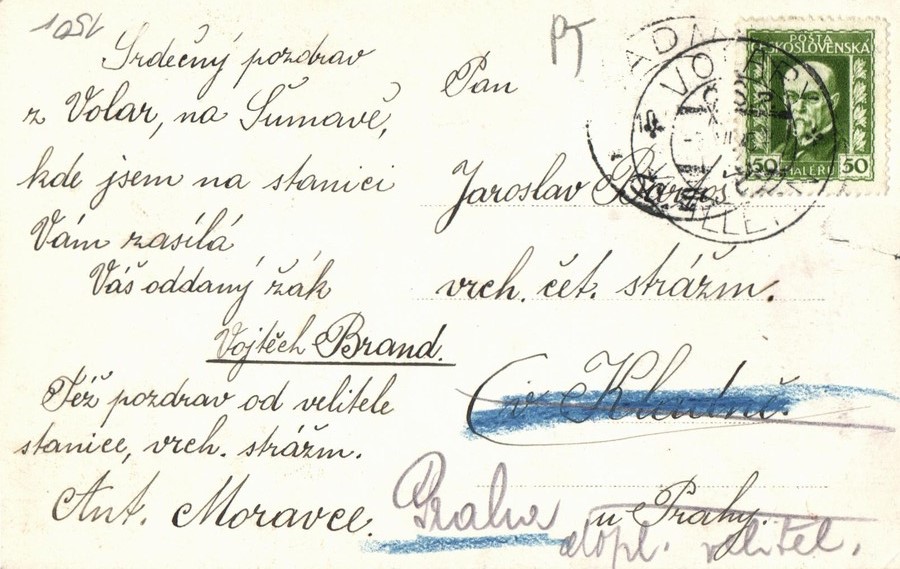 Srdečný pozdrav
z Volar, na Šumavě,
kde jsem na stanici
Vám zasílá
Váš oddaný žák
Vojtěch Brand.
Též pozdrav od velitele
stanice, vrch. strážm.
Ant. Moravce.
Pan
Jaroslav
vrch. čet. strážm.
v Kladně.
u Prahy.
Praha
dopl. velitel.
POŠTA
ČESKOSLOVENSKÁ
50 HALÉŘŮ 50
VOLARY